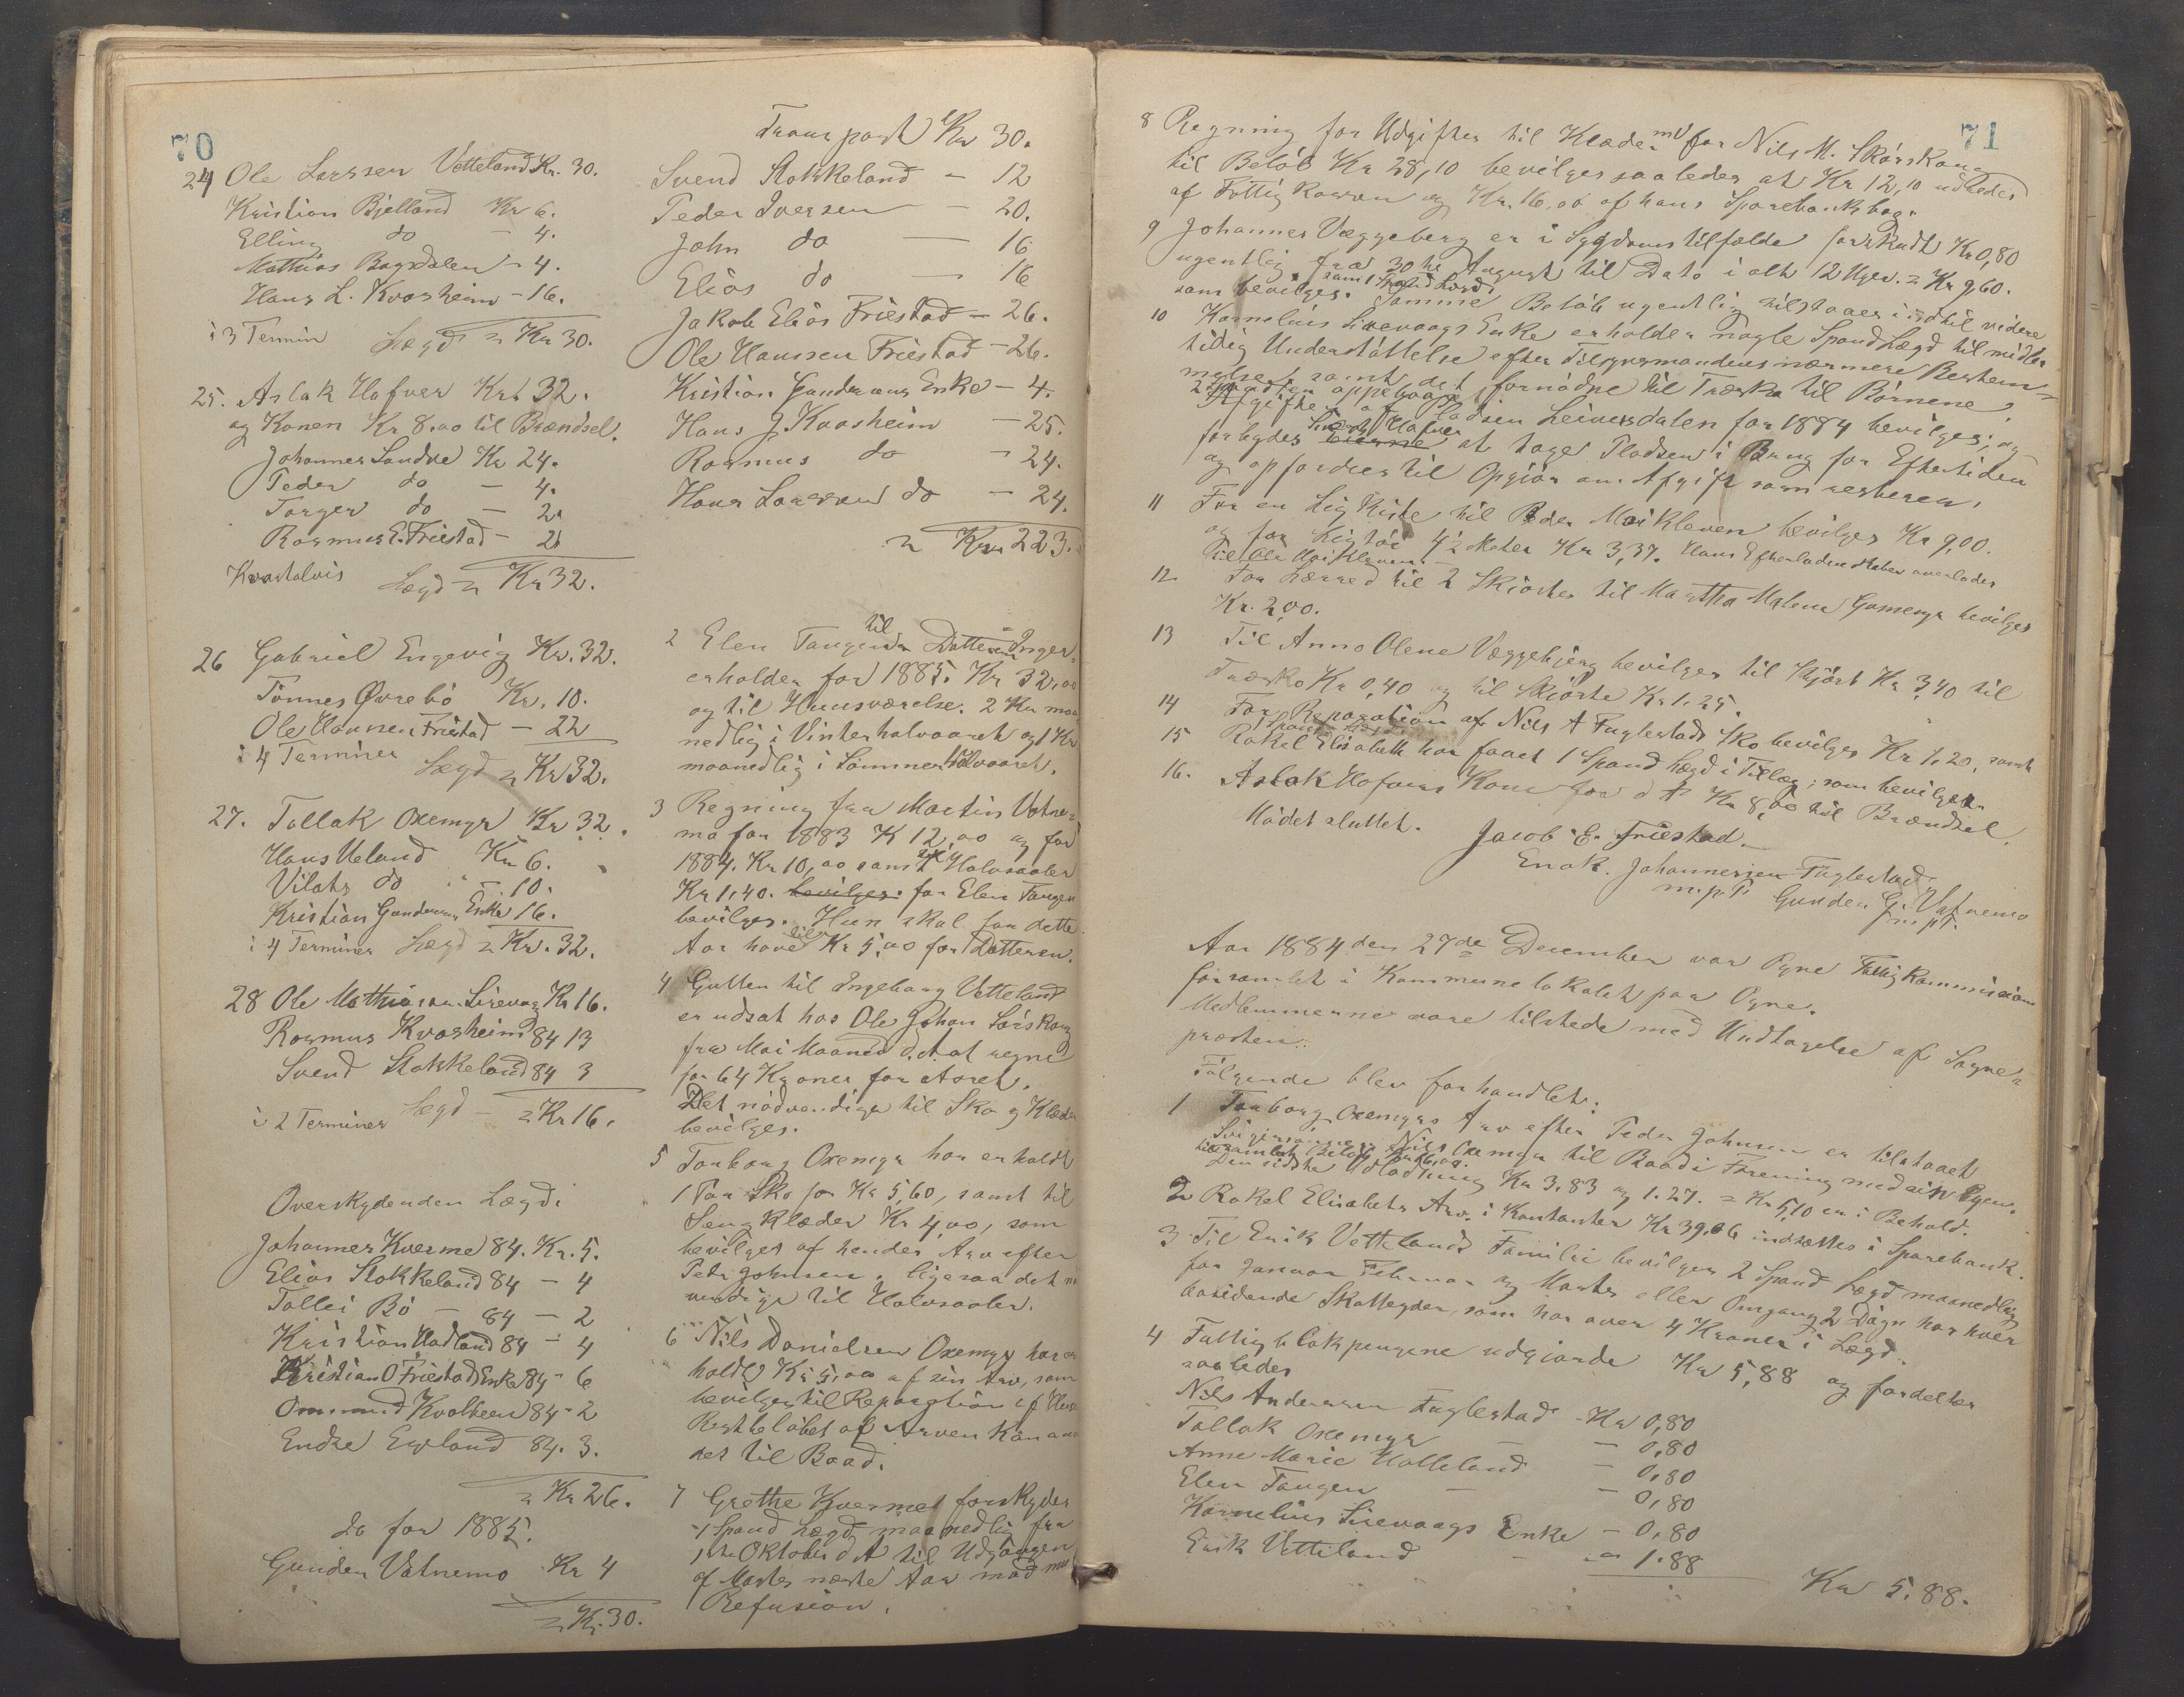 70
24 Ole Larssen Vetteland Kr. 30.
Kristian Bjelland Kr 6.
Elling do - 4.
Mathias Bagsdalen - 4.
Hans L. Kvasheim - 16.
i 3 Termin Lægd = Kr 30.
25. Aslak Hafver Kr 32.
og Konen Kr 8.00 til Brændsel.
Johannes Sandve Kr 24.
Peder do - 4.
Torger do - 2.
Rasmus E. Friestad - 2.
Kvartalvis Lægd = Kr 32.
26 Gabriel Engevig Kr. 32.
Tönnes Øvrebö Kr. 10.
Ole Hannen Friestad - 22
i 4 Terminer Lægd = Kr 32.
27. Tollak Oxemyr Kr 32.
Hans Ueland Kr 6.
Vilats do - 10.
Kristian Gundersens Enke 16.
i 4 Terminer Lægd = Kr. 32.
28 Ole Mathiasen Sirevag Kr 16.
Rasmus Kvasheim 84 13
Svend Stokkeland 84 3
i 2 Terminer Lægd - = Kr 16.
Overskydenden Lægd:
Johannes Kverme 84. Kr. 5.
Elias Stokkeland 84 - 4
Tollei Bö - 84 - 2
Kristian Hadland 84 - 4
Kristian O Friestads Enke 84 - 6
Ommund Kvalbein 84 - 2
Endre Egeland 84. 3.
= Kr 26.
do for 1885.
Gunder Vatnemo Kr 4
= Kr. 30.
Transport Kr 30.
Svend Stokkeland - 12
Peder Iversen - 20.
John do - 16
Elias do - 16
Jakob Elias Friestad - 26.
Ole Hanssen Friestad - 26.
Kristian Gundersens Enke - 4.
Hans J. Kvasheim - 25.
Rasmus do - 24.
Hans Larssen do - 24.
= Kr 223.
2 Elen Tangen til Datteren Inger
erholder for 1885. Kr 32,00
og til Huusværelse. 2 Kr maa
nedlig i Vinterhalvaaret og 1 Kr
maanedlig i Sommerhalvaaret.
3 Regning fra Martin Vatne=
mo for 1883 K 12,00 og for
1884. Kr 10,00 samt til Halvsaaler
Kr 1,40. bevilges for Elen Tangen
bevilges. Hun skal for dette
Aar have til Kr 5,00 for Datteren.
4 Gutten til Ingeborg Vetteland
er udsat hos Ole Johan Sörskaug
fra Mai Maaned d.A. at regne
for 64 Kroner for Aaret.
Det nødvendige til Sko og Klæder
bevilges.
5 Torborg Oxemyr har erholdt
1 Par Sko for Kr 5,60, samt til
Sengklæder Kr 4,00, som
bevilges af hendes Arv efter
Peder Johnsen. ligesaa det nö
vendige til Halvsaaler.
6 Nils Danielsen Oxemyr har er
holdt Kr 5,00 af sin Arv, som
bevilges til Reparation af Huus
Restbelöbet af Arven kan an
des til Baad.
7 Grethe Kvermes forskyder
1 Spand Lægd maanedlig fra
1ste Oktober d A til Udgangen
af Marts næste Aar mod
Refusion.
71
8 Regning for Udgifter til Klæder mv for Nils M. Skörskaug
til Beløb Kr 28,10 bevilges saaledes at Kr 12,10 udredes
af Fattigkassen og Kr. 16,00 af hans Sparebanksbog.
9 Johannes Væggeberg er i Sygdoms tilfælde forskudt Kr 0,80
ugentlig fra 30te August til Dato i alt 12 Uger. = Kr 9,60.
som bevilges. samt 1 Spand Lægd. Samme Beløb ugentlig tilstaaes indtil videre
10 Kornelius Sirevaags Enke erholder nogle Spand Lægd til midler
tidig Understöttelse efter Tilsynsmandens nærmere Bestem=
melse samt det fornödne til Træsko til Börnene.
Afgiften af Pladsen Leiversdalen for 1884 bevilges; og
forbydes Sivert Hafver at tage Pladsen i Brug for Eftertiden
og opfordres til Opgjör om Afgift som resterer.
11 For en Ligkiste til Peder Moikleven bevilges Kr 9,00.
og for Ligtöi 4½ Meter Kr 3,37. Hans Efterladenskaber overlades
til Ole Moikleven.
12 For Lærred til 2 Skiorter til Martha Malene Gomemyr bevilges
Kr. 2,00.
13 Til Anna Olene Væggebjerg bevilges til Skjört Kr 3,40 til
Træsko Kr 0,40 og til Skiorte Kr 1,25.
14 For Reparation af Nils A Fuglestads Sko bevilges Kr 1,20, samt
15 Rakel Elisabeth har faaet 1 Spand Lægd i Tillæg; som bevilges.
16. Aslak Hafvers Kone for d A Kr 8,00 til Brændsel.
Mödet sluttet.
Jacob E. Friestad.
Enok. Johannessen Fuglestad
m.p.P. Gunder G. Vatnemo
m. p. P.
Aar 1884 den 27de December var Ogne Fattigkommission
forsamlet i Kommunelokalet paa Ogne.
Medlemmerne vare tilstede med Undtagelse af Sogne=
præsten.
Fölgende blev forhandlet:
1 Torborg Oxemyrs Arv efter Peder Johnsen er tilstaaet
Svigersönnen Nils Oxemyr til Baad i Forening med sin Egen.
Den sidste Udlodning Kr 3,83 og 1.27. = Kr 5,10 er i Behold.
2 Rakel Elisabets Arv. i Kontanter Kr 39.06 indsættes i Sparebank.
3 Til Erik Vettelands Familie bevilges 2 Spand Lægd maanedlig
for Januar Februar og Marts eller Omgang 2 Dögn hos hver
bosidende Skatteyder, som har over 4 Kroner i Lægd.
4 Fattigblokpengene udgjorde Kr 5,88 og fordeltes
saaledes
Nils Andersen Fuglestad - Kr 0,80
Tollak Oxemyr - 0,80
Anne Marie Holleland - 0,80
Elen Tangen - 0,80
Kornelius Sirevaags Enke - 0,80
Erik Vetteland - 1.88
Kr 5.88.